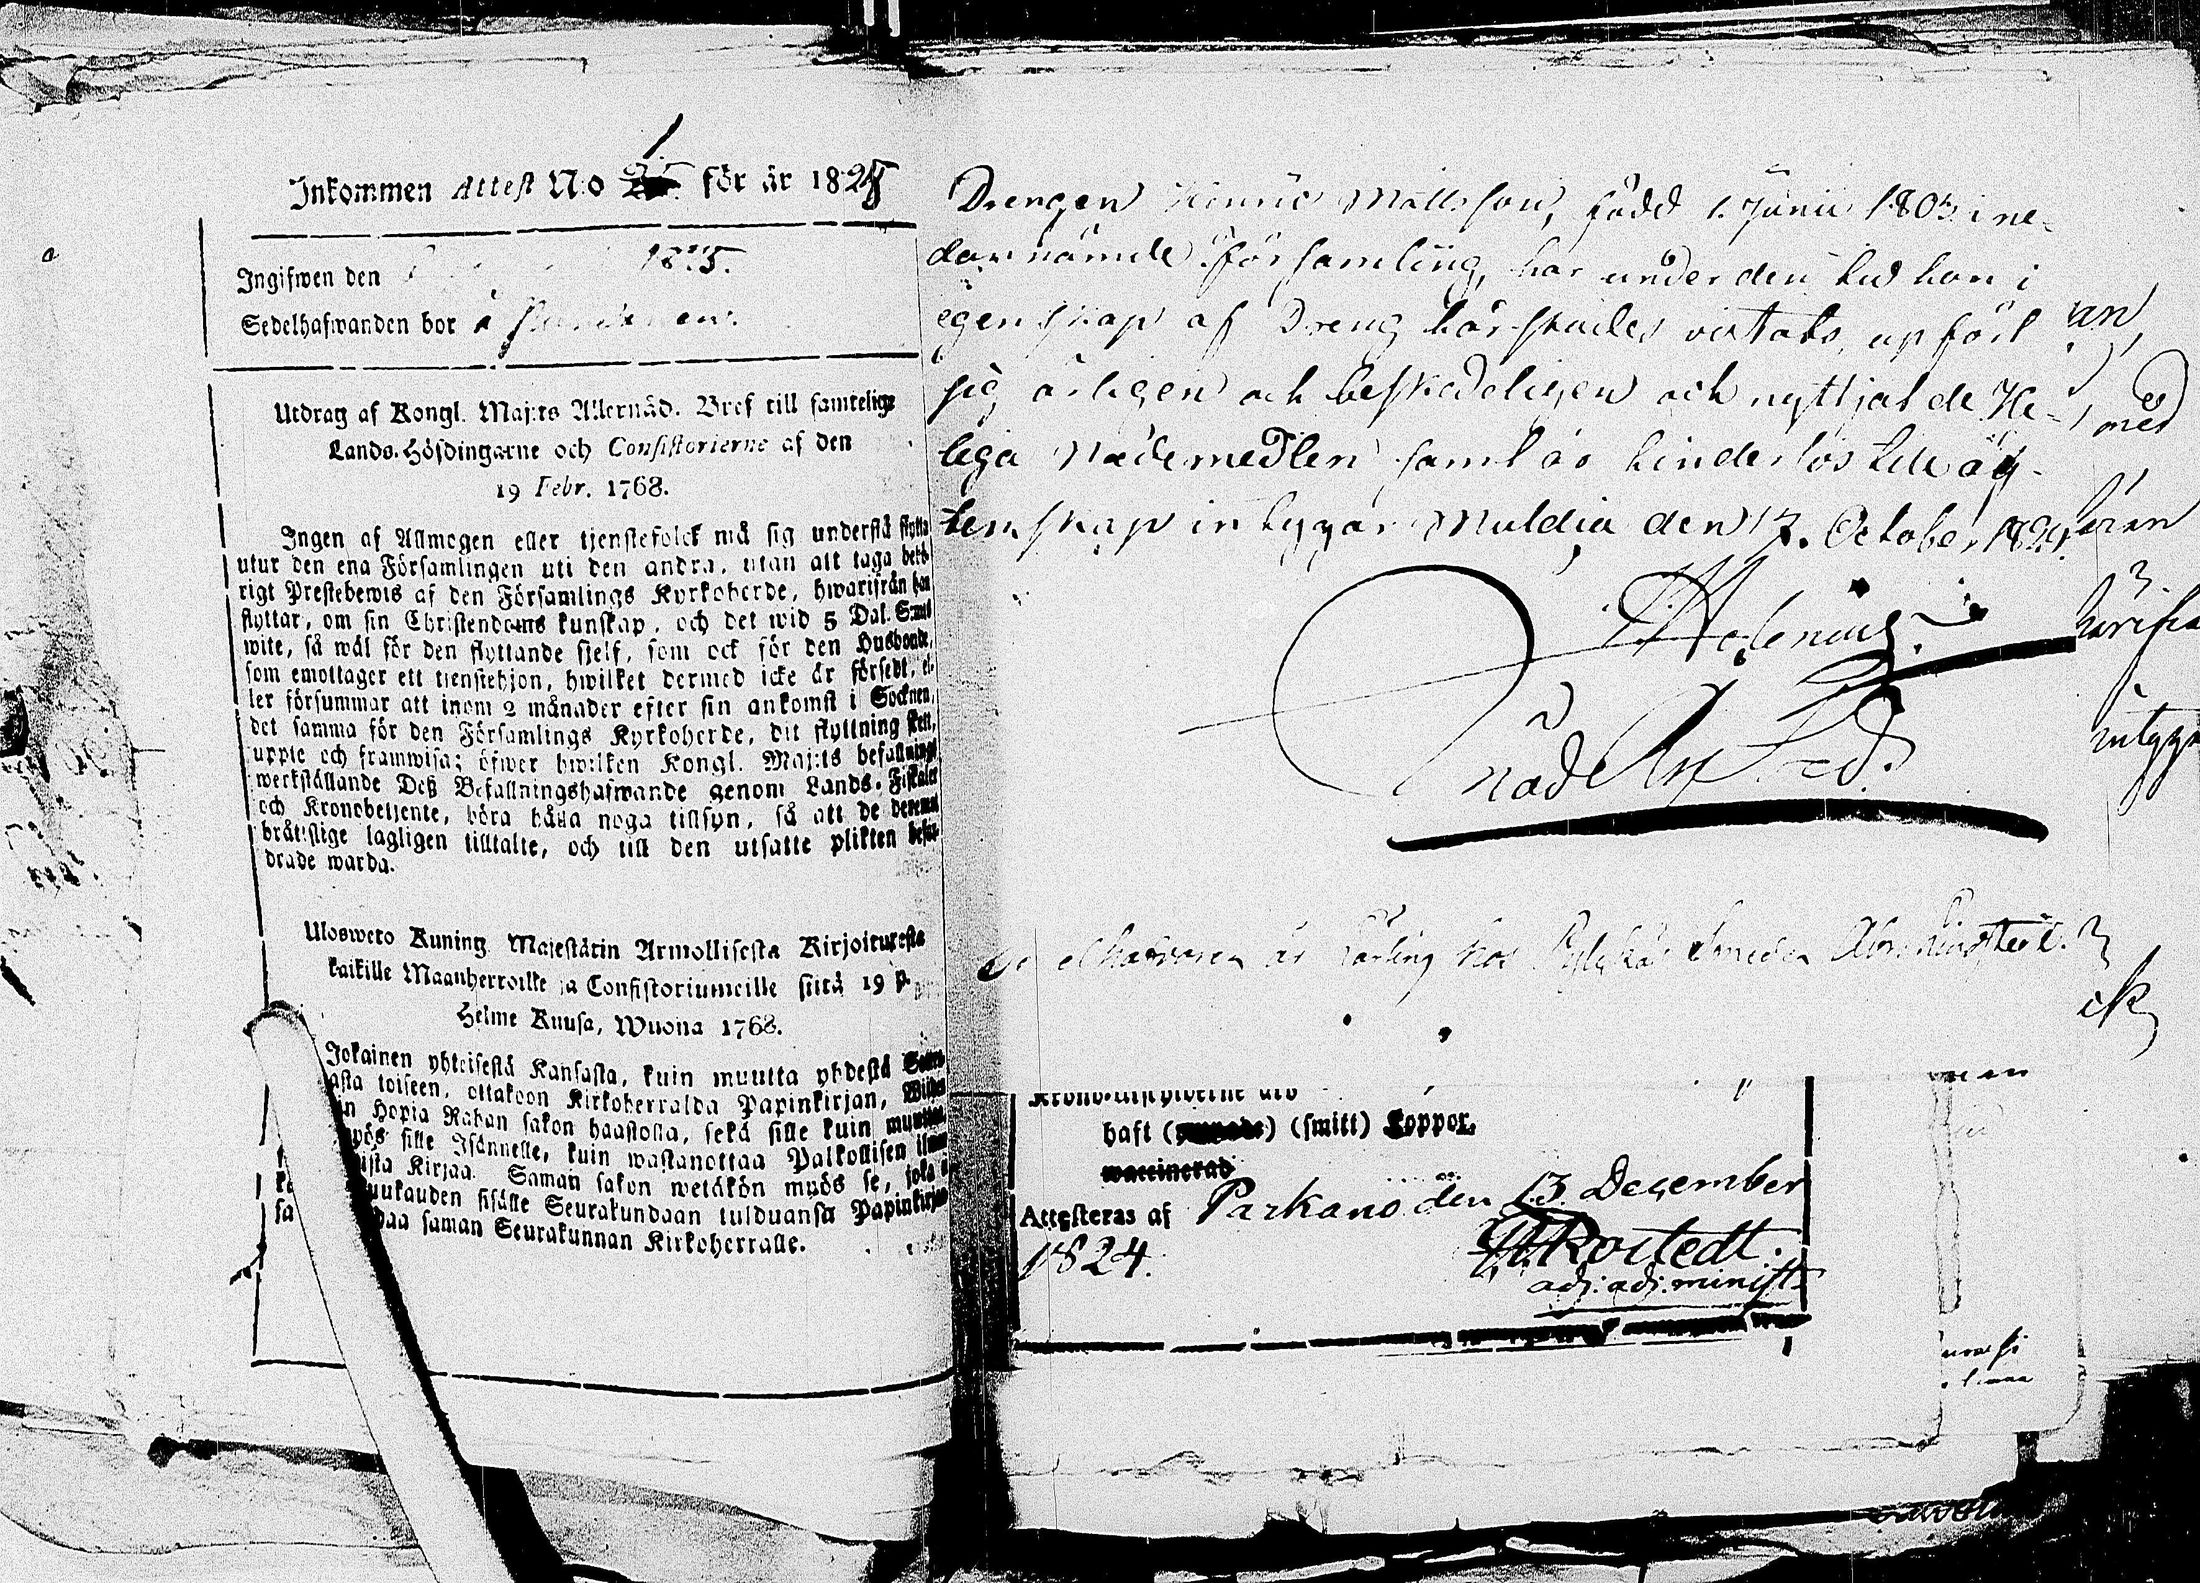 Inkommen Attest N:o 1 för år 1825
Ingifwen den 1825.
Sedelhafwanden bor å
Utdrag af Kongl. Maj:ts Allernåd. Bref till samtelige
Lands-Höfdingarne och Consistorierne af den
19 Febr. 1768.
Ingen af Allmogen eller tjenstefolck må sig understå flytta
utur den ena Församlingen uti den andra, utan att taga behö-
rigt Prestebewis af den Församlings Kyrkoherde, hwarifrån han
flyttar, om sin Christendoms kunskap, och det wid 5 Dal. S:mts
wite, så wäl för den flyttande sjelf, som ock för den Husbonde,
som emottager ett tjenstehjon, hwilket dermed icke är försedt, el-
ler försummar att inom 2 månader efter sin ankomst i Socknen,
det samma för den Församlings Kyrkoherde, dit flyttning skett,
uppte och framwisa; öfwer hwilken Kongl. Maj:ts befallnings
werkställande Deß Befallningshafwande genom Lands-Fiskaler
och Kronobetjente, böra hålla noga tillsyn, så att de deremot
bråttslige lagligen tilltalte, och till den utsatte plikten befor-
drade warda.
Ulosweto Kuning. Majestätin Armollisesta Kirjoituxesta
kaikille Maanherroille ja Consistoriumeille siitä 19 p.
Helme Kuusa, Wuona 1768.
Jokainen yhteisestä Kansasta, kuin muutta yhdestä Seura-
asta toiseen, ottakoon Kirkoherralda Papinkirjan, Wiiden
in Hopia Rahan sakon haastolla, sekä sille kuin muuttaa
yös sille Isännelle, kuin wastanottaa Palkollisen ilman
ista Kirjaa. Saman sakon wetäkön myös se, joka ei
uukauden sisälle Seurakundaan tulduansa Papinkirjaa
aa saman Seurakunnan Kirkoherralle.
Drengen Henric Mattsson, född 1. Junii 1803 i ne-
dannämde församling, har under den tid han i
egenskap af Dreng härstädes vistats, upfört
sig ärligen och beskedeligen och nyttjat de He-
liga Nådemedlen samt är hinderlös till äg-
tenskap intygar Muldia den 17. October 1824.
Nåd. Års Pred.
är Lärling hos Smeden
haft (smitt) Koppor.
waccinerad
Attesteras af Parkano den 13 December
1824.
adj: adj: minist:
an
med
från
härifrå
intyga